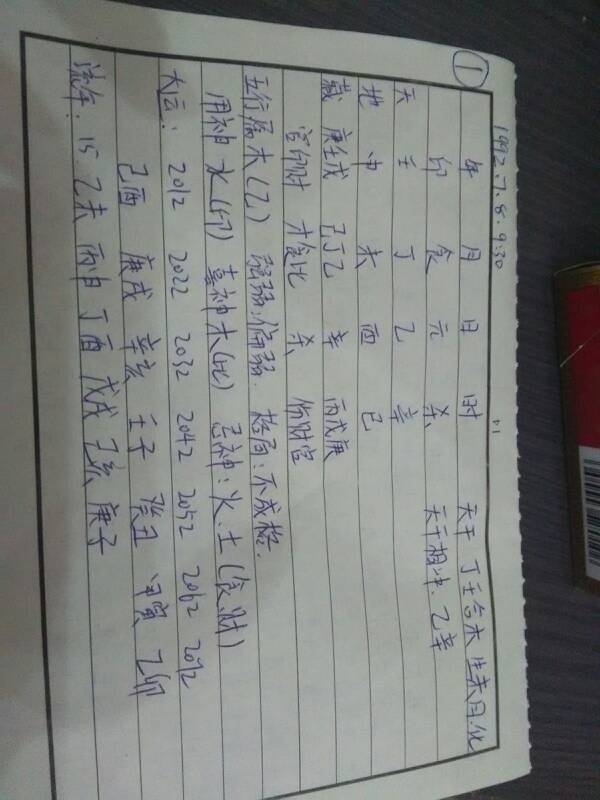 1992.7.8. 9:30
①
年 月 日 时 天干 丁壬合木 生未月化
印 食 元 杀 天干相冲.乙辛
天 壬 丁 乙 辛
地 申 未 酉 巳
藏 庚壬戊 己丁乙 辛 丙戊庚
官印财 才食比 杀 伤财官
五行属木(乙) 强弱:偏弱. 格局:不成格.
用神 水(印) 喜神木(比) 忌神:火.土(食.财)
大运: 2012 2022 2032 2042 2052 2062 2072
己酉 庚戌 辛亥 壬子 癸丑 甲寅 乙卯
流年. 15.乙未 丙申 丁酉 戊戌 己亥 庚子